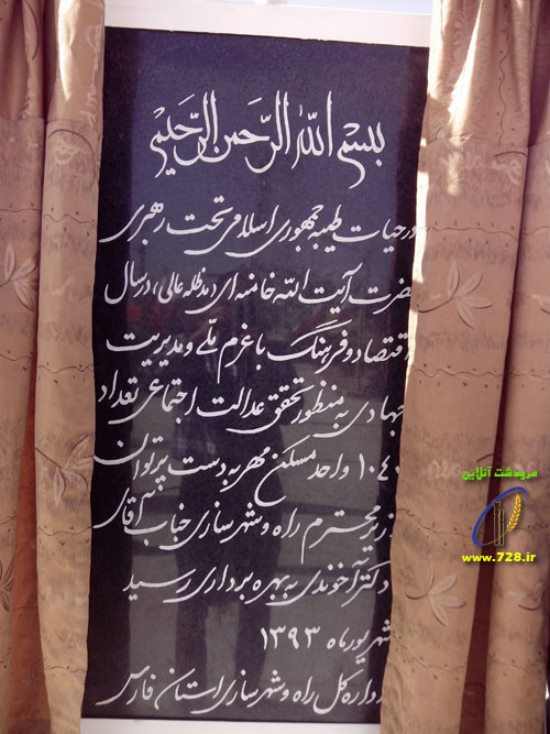 بسم الله الرحمن الرحیم
در حیات طیبه جمهوری اسلامی تحت رهبری
حضرت آیت الله خامنه ای (مدظله عالی)، در سال
اقتصاد و فرهنگ با عزم ملی و مدیریت
جهادی به منظور تحقق عدالت اجتماعی تعداد
۱۰۴۰ واحد مسکن مهر به دست پرتوان
وزیر محترم راه و شهرسازی جناب آقای
دکتر آخوندی به بهره برداری رسید
شهریور ماه ۱۳۹۳
اداره کل راه و شهرسازی استان فارس
مرودشت آنلاین
www.728.ir